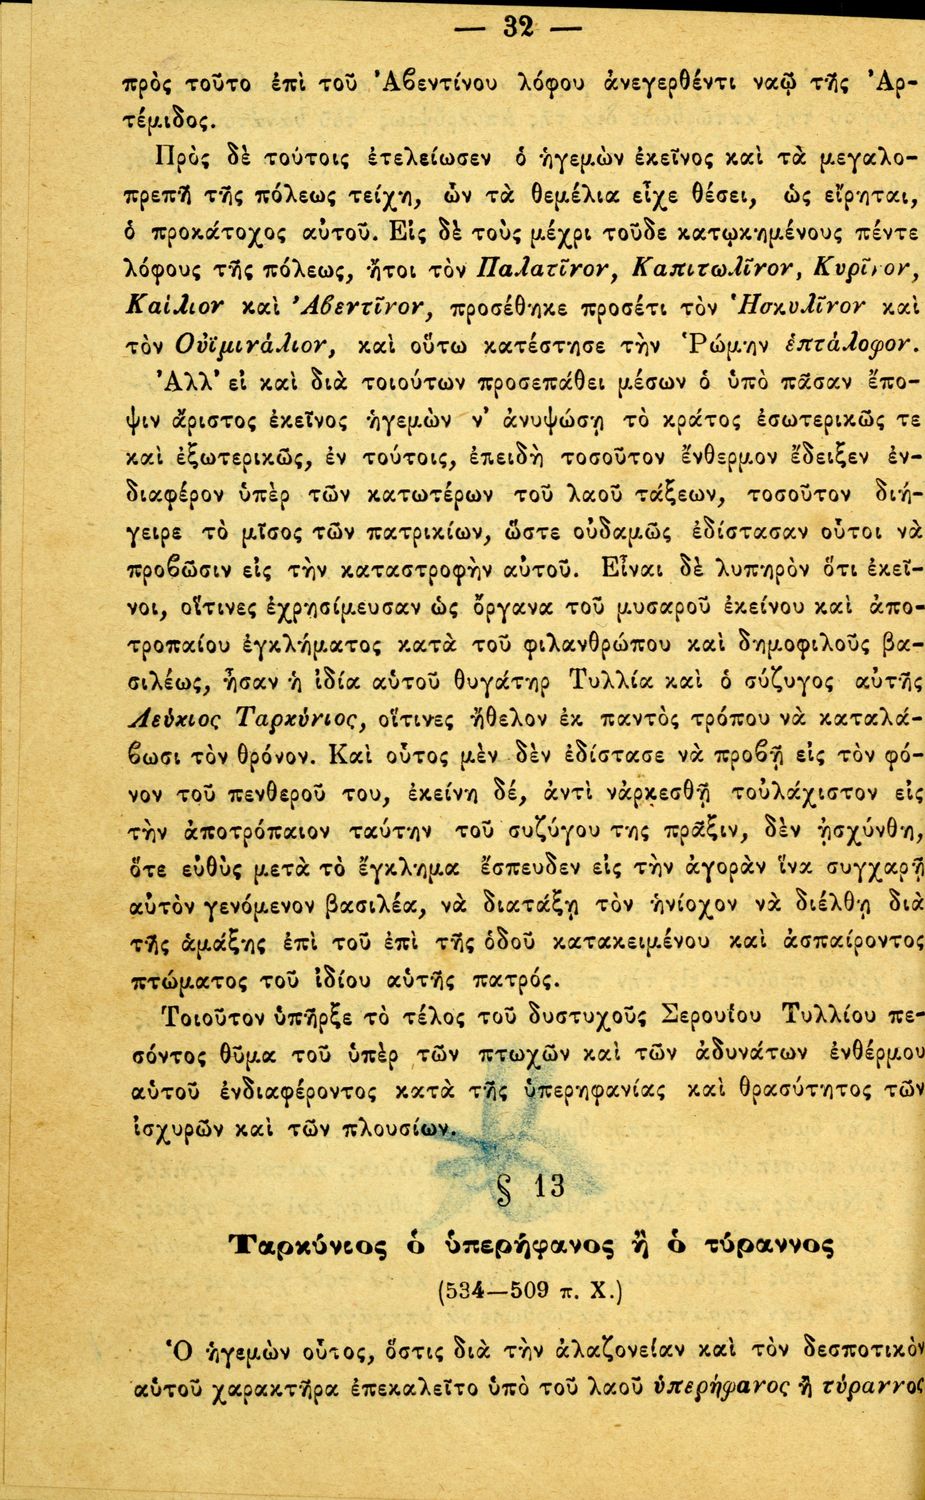 — 32 —
πρὸς τοῦτο ἐπὶ τοῦ Ἀβεντίνου λόφου ἀνεγερθέντι ναῷ τῆς Ἀρ-
τέμιδος.
Πρὸς δὲ τούτοις ἐτελείωσεν ὁ ἡγεμὼν ἐκεῖνος καὶ τὰ μεγαλο-
πρεπῆ τῆς πόλεως τείχη, ὧν τὰ θεμέλια εἶχε θέσει, ὡς εἴρηται,
ὁ προκάτοχος αὐτοῦ. Εἰς δὲ τοὺς μέχρι τοῦδε κατῳκημένους πέντε
λόφους τῆς πόλεως, ἤτοι τὸν Παλατῖνον, Καπιτωλῖνον, Κυρῖνον,
Καίλιον καὶ Ἀβεντῖνον, προσέθηκε προσέτι τὸν Ἡσκυλῖνον καὶ
τὸν Οὐϊμινάλιον, καὶ οὕτω κατέστησε τὴν Ῥώμην ἑπτάλοφον.
Ἀλλ' εἰ καὶ διὰ τοιούτων προσεπάθει μέσων ὁ ὑπὸ πᾶσαν ἔπο-
ψιν ἄριστος ἐκεῖνος ἡγεμὼν ν' ἀνυψώσῃ τὸ κράτος ἐσωτερικῶς τε
καὶ ἐξωτερικῶς, ἐν τούτοις, ἐπειδὴ τοσοῦτον ἔνθερμον ἔδειξεν ἐν-
διαφέρον ὑπὲρ τῶν κατωτέρων τοῦ λαοῦ τάξεων, τοσοῦτον διή-
γειρε τὸ μῖσος τῶν πατρικίων, ὥστε οὐδαμῶς ἐδίστασαν οὗτοι νὰ
προβῶσιν εἰς τὴν καταστροφὴν αὐτοῦ. Εἶναι δὲ λυπηρὸν ὅτι ἐκεῖ-
νοι, οἵτινες ἐχρησίμευσαν ὡς ὄργανα τοῦ μυσαροῦ ἐκείνου καὶ ἀπο-
τροπαίου ἐγκλήματος κατὰ τοῦ φιλανθρώπου καὶ δημοφιλοῦς βα-
σιλέως, ἦσαν ἡ ἰδία αὐτοῦ θυγάτηρ Τυλλία καὶ ὁ σύζυγος αὐτῆς
Λεύκιος Ταρκύνιος, οἵτινες ἤθελον ἐκ παντὸς τρόπου νὰ καταλά-
βωσι τὸν θρόνον. Καὶ οὗτος μὲν δὲν ἐδίστασε νὰ προβῇ εἰς τὸν φό-
νον τοῦ πενθεροῦ του, ἐκείνη δέ, ἀντὶ νἀρκεσθῇ τοὐλάχιστον εἰς
τὴν ἀποτρόπαιον ταύτην τοῦ συζύγου της πρᾶξιν, δὲν ᾐσχύνθη,
ὅτε εὐθὺς μετὰ τὸ ἔγκλημα ἔσπευδεν εἰς τὴν ἀγορὰν ἵνα συγχαρῇ
αὐτὸν γενόμενον βασιλέα, νὰ διατάξῃ τὸν ἡνίοχον νὰ διέλθῃ διὰ
τῆς ἁμάξης ἐπὶ τοῦ ἐπὶ τῆς ὁδοῦ κατακειμένου καὶ ἀσπαίροντος
πτώματος τοῦ ἰδίου αὐτῆς πατρός.
Τοιοῦτον ὑπῆρξε τὸ τέλος τοῦ δυστυχοῦς Σερουΐου Τυλλίου πε-
σόντος θῦμα τοῦ ὑπὲρ τῶν πτωχῶν καὶ τῶν ἀδυνάτων ἐνθέρμου
αὐτοῦ ἐνδιαφέροντος κατὰ τῆς ὑπερηφανίας καὶ θρασύτητος τῶν
ἰσχυρῶν καὶ τῶν πλουσίων.
§ 13
Ταρκύνιος ὁ ὑπερήφανος ἢ ὁ τύραννος
(534—509 π. Χ.)
Ὁ ἡγεμὼν οὗτος, ὅστις διὰ τὴν ἀλαζονείαν καὶ τὸν δεσποτικὸν
αὐτοῦ χαρακτῆρα ἐπεκαλεῖτο ὑπὸ τοῦ λαοῦ ὑπερήφανος ἢ τύραννος